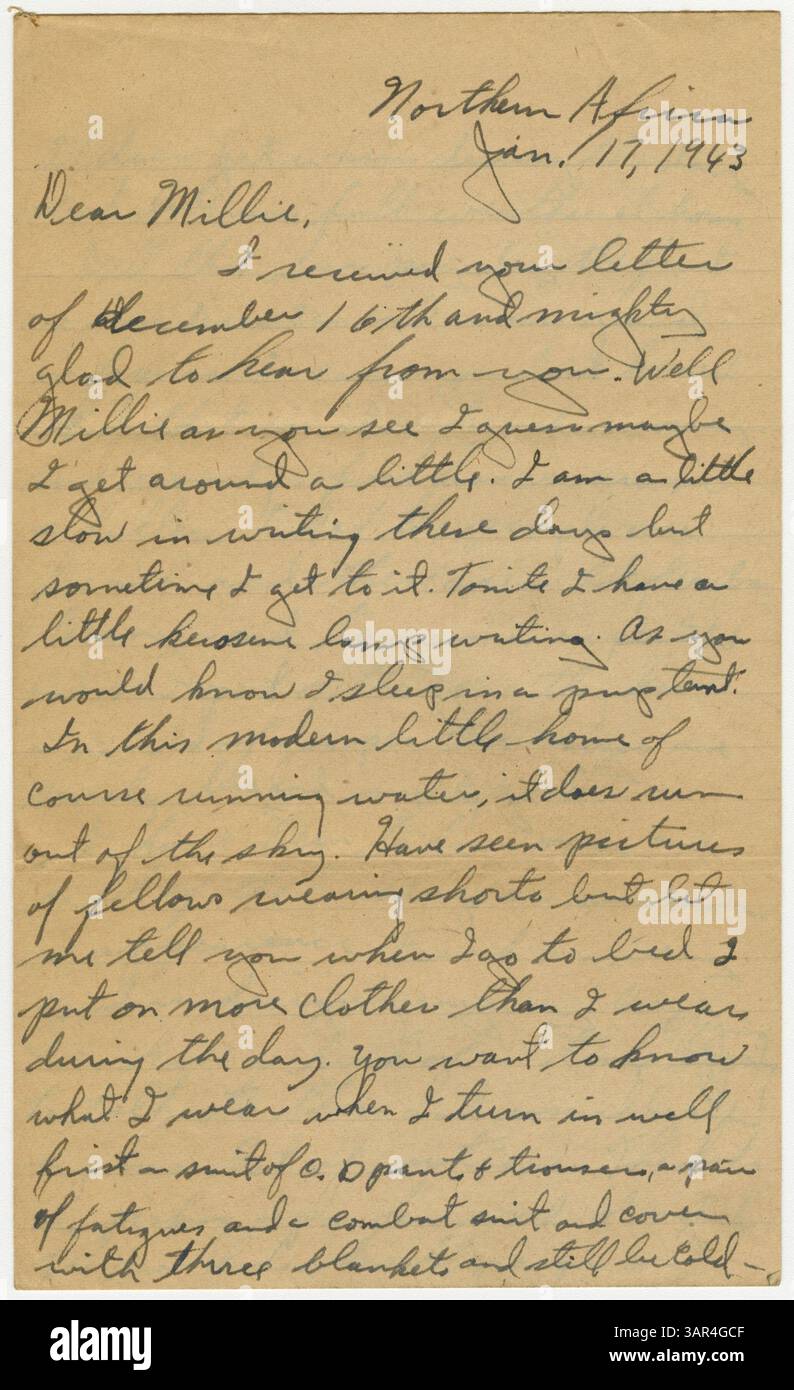 Northern Africa
Jan. 17, 1943
Dear Millie,
I received your letter
of December 16th and mighty
glad to hear from you. Well
Millie as you see I guess maybe
I get around a little. I am a little
slow in writing these days but
sometime I get to it. Tonite I have a
little kerosene lamp writing. As you
would know I sleep in a pup tent.
In this modern little home of
course running water, it does run
out of the sky. Have seen pictures
of fellows wearing shorts but let
me tell you when I go to bed I
put on more clothes than I wear
during the day. You want to know
what I wear when I turn in well
first a suit of O.D pants & trousers, a pair
of fatigues and a combat suit and cover
with three blankets and still be cold –
alamy
Image ID: 3AR4GCF
www.alamy.com